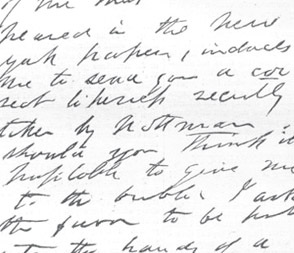 peared in the New
York papers, induces
me to send you a cor
rect likeness recently
taken by Nottman.
should you think it
possible to give me
to the public I ask
the favor to be put
into the hands of a